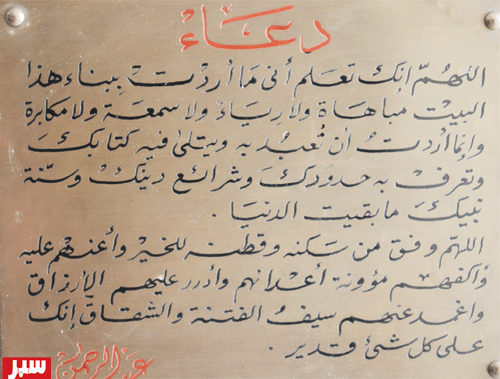 دعاء
اللهمّ انك تعلم أنى ما أردت ببناء هذا
البيت مباهاة ولا رياء ولا سمعة ولا مكابرة
وإنما أردت أن تُعبُد به ويتلى فيه كتابك
وتعرف به حدودك وشرائع دينك وسنّة
نبيك ما بقيت الدنيا .
اللهم وفق من سكنه وقطنه للخير وأعنهم عليه
وأكفهم مؤونة أعدائهم وأدرر عليهم الأرزاق
واغمد عنهم سيف الفتنة والشقاق إنك
على كل شئ قدير .
عبد الرحمن
سبر